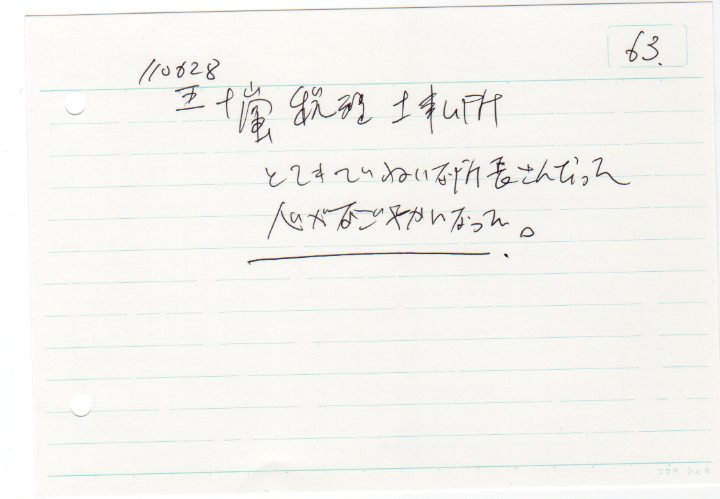 63.
110628
五十嵐税理士事ム所
とてもていねいな所長さんだった
心がなごやかになった。
コクヨ シカ-5